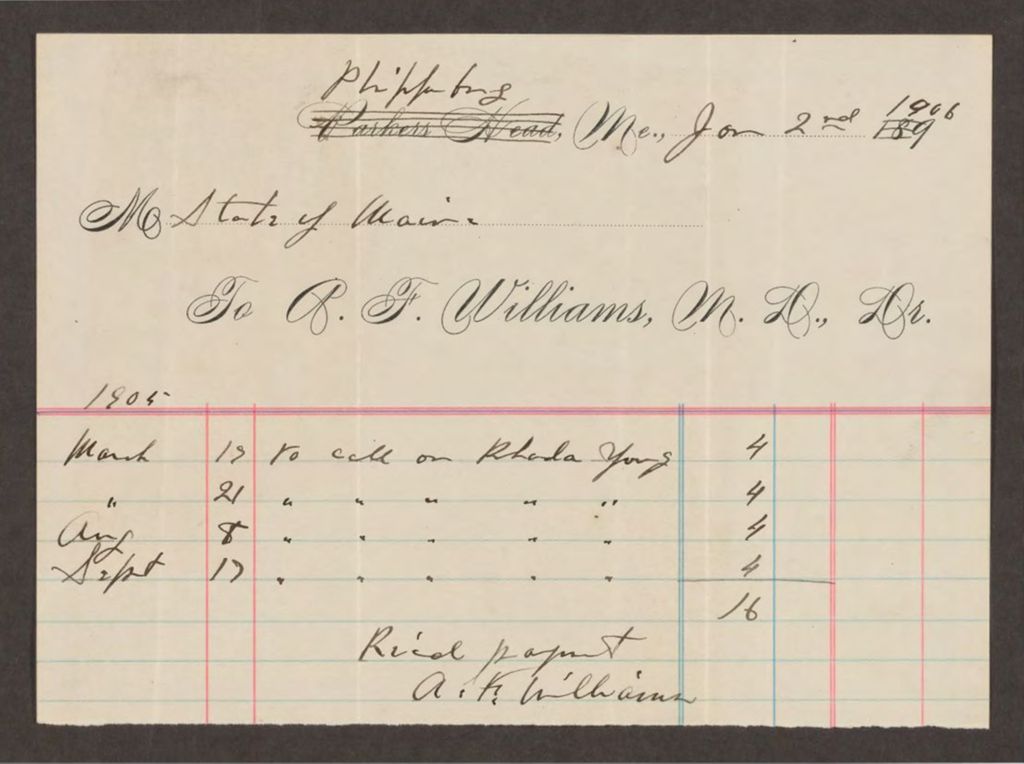 Phippsburg
Parkers Head, Me., Jan 2nd 1906
189
M State of Maine
To A. F. Williams, M. D., Dr.
1905
March 19 to call on Rhoda Young 4
" 21 " " " " " 4
Aug 8 " " " " " 4
Sept 17 " " " " " 4
16
Rec'd paymt
A. F. Williams